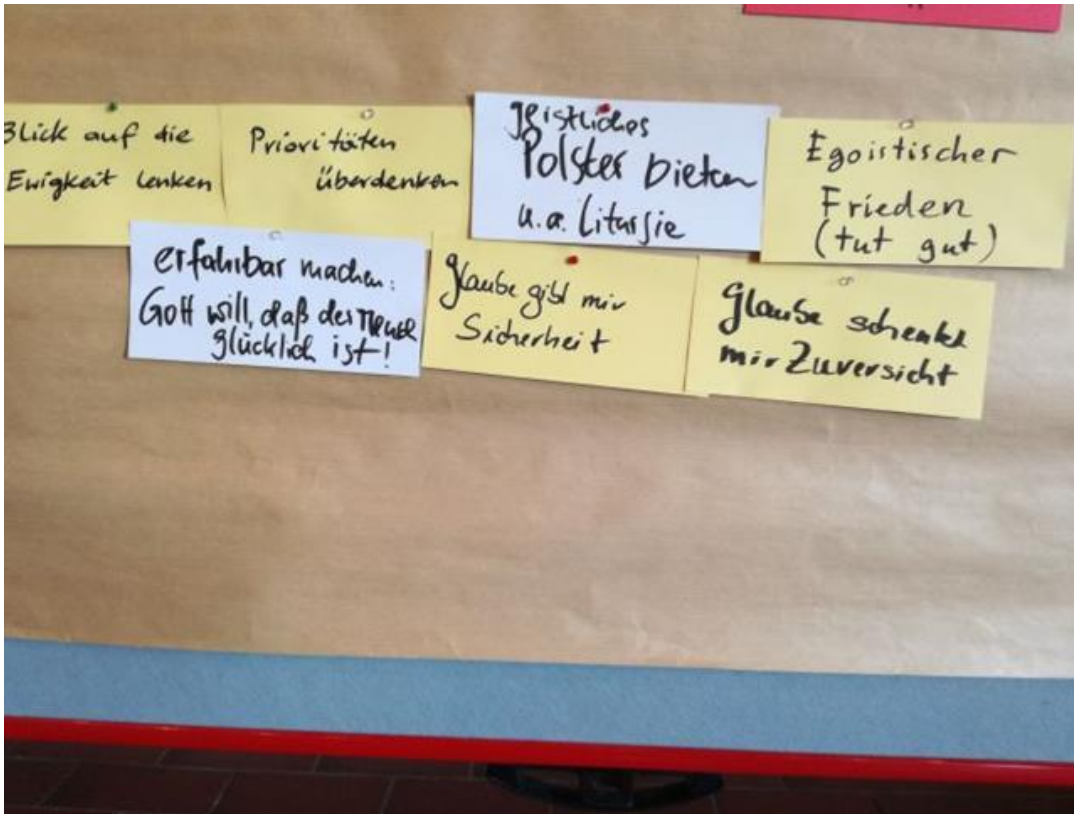 Blick auf die
Ewigkeit lenken
Prioritäten
überdenken
geistliches
Polster bieten
u.a. Liturgie
Egoistischer
Frieden
(tut gut)
erfahrbar machen:
Gott will, daß der Mensch
glücklich ist!
Glaube gibt mir
Sicherheit
Glaube schenkt
mir Zuversicht